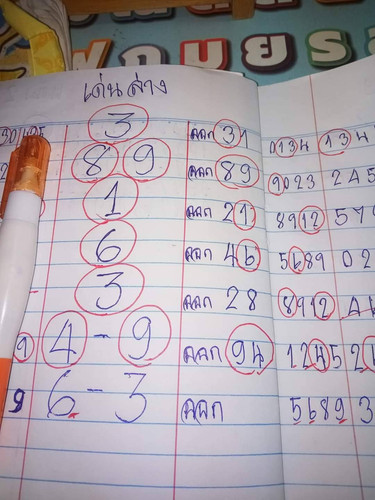 เด่นล่าง
3 ออก 31 0134 134
8 9 ออก 89 9023 245
1 ออก 21 8912 57
6 ออก 46 5689 02
3 ออก 28 8912
9 4-9 ออก 94 1245 2
9 6-3 ออก 5689 3